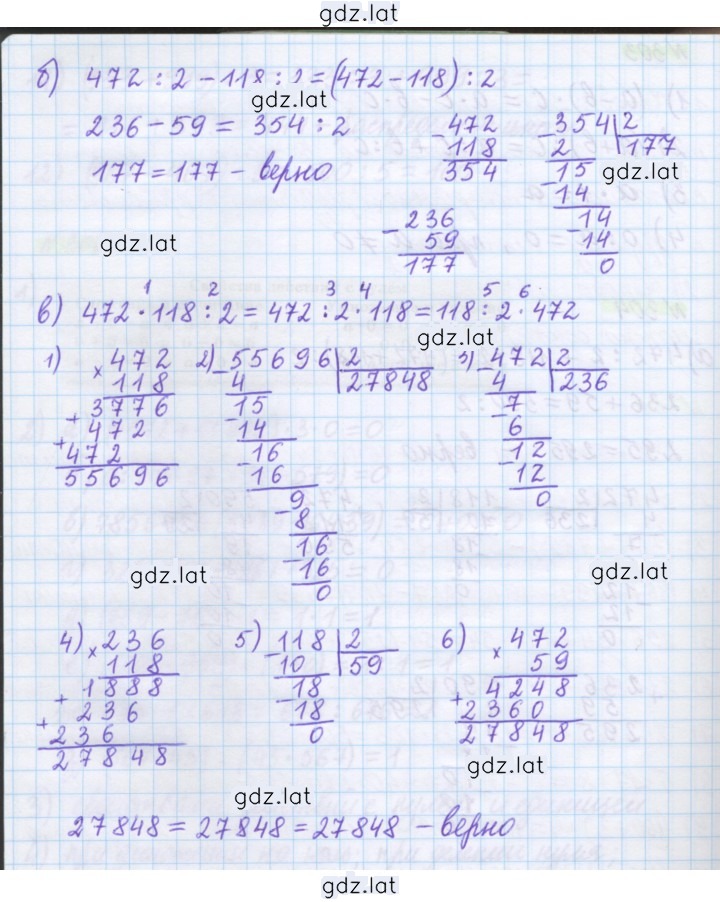 gdz.lat
б) 472 : 2 - 118 : 2 = (472 - 118) : 2
gdz.lat
236 - 59 = 354 : 2
177 = 177 - верно
- 472
118
354
- 354 | 2
2 177
15
- 14
14
- 14
0
gdz.lat
gdz.lat
- 236
59
177
1 2 3 4 5 6
в) 472 · 118 : 2 = 472 : 2 · 118 = 118 : 2 · 472
gdz.lat
1) × 472
118
+ 3776
+ 472
472
55696
2) - 55696 | 2
4 27848
15
- 14
- 16
16
- 9
8
- 16
16
0
3) - 472 | 2
4 236
- 7
6
- 12
12
0
gdz.lat
gdz.lat
4) × 236
118
+ 1888
+ 236
236
27848
5) - 118 | 2
10 59
- 18
18
0
6) × 472
59
+ 4248
2360
27848
gdz.lat
gdz.lat
27848 = 27848 = 27848 - верно
gdz.lat